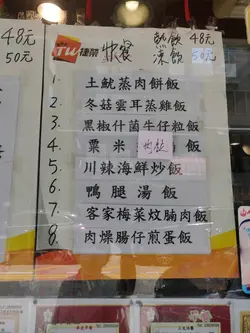 48元
50元
TW 捷榮 快餐
熱飲 48元
凍飲 50元
1. 土魷蒸肉餅飯
2. 冬菇雲耳蒸雞飯
3. 黑椒什菌牛仔粒飯
4. 粟米肉粒飯
5. 川辣海鮮炒飯
6. 鴨腿湯飯
7. 客家梅菜炆腩肉飯
8. 肉燥腸仔煎蛋飯